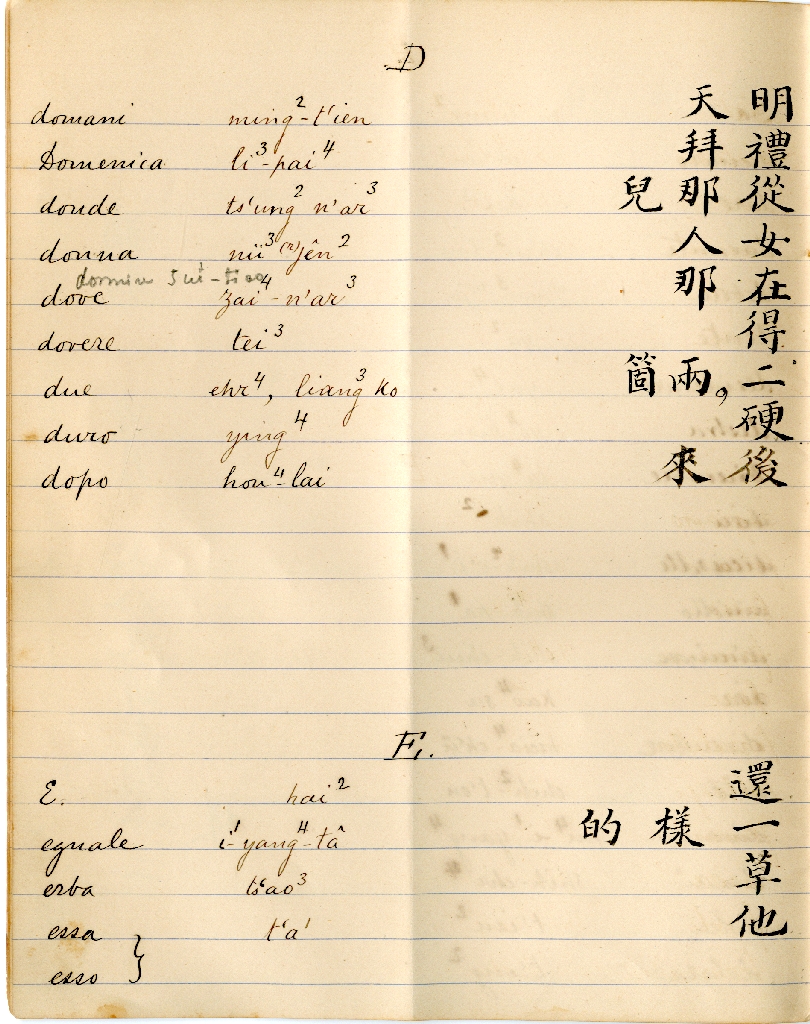 D
domani ming²-t'ien 明天
Domenica li³-pai⁴ 禮拜
donde ts'ung² n'ar³ 從那兒
donna nü³ (r)jên² 女人
dove zai⁴-n'ar³ 在那
dovere tei³ 得
due ehr⁴, liang³ ko 二。兩箇
duro ying⁴ 硬
dopo hou⁴-lai 後來
E.
E. hai² 還
eguale i¹-yang⁴-tâ 一樣的
erba ts'ao³ 草
essa t'a¹ 他
esso }